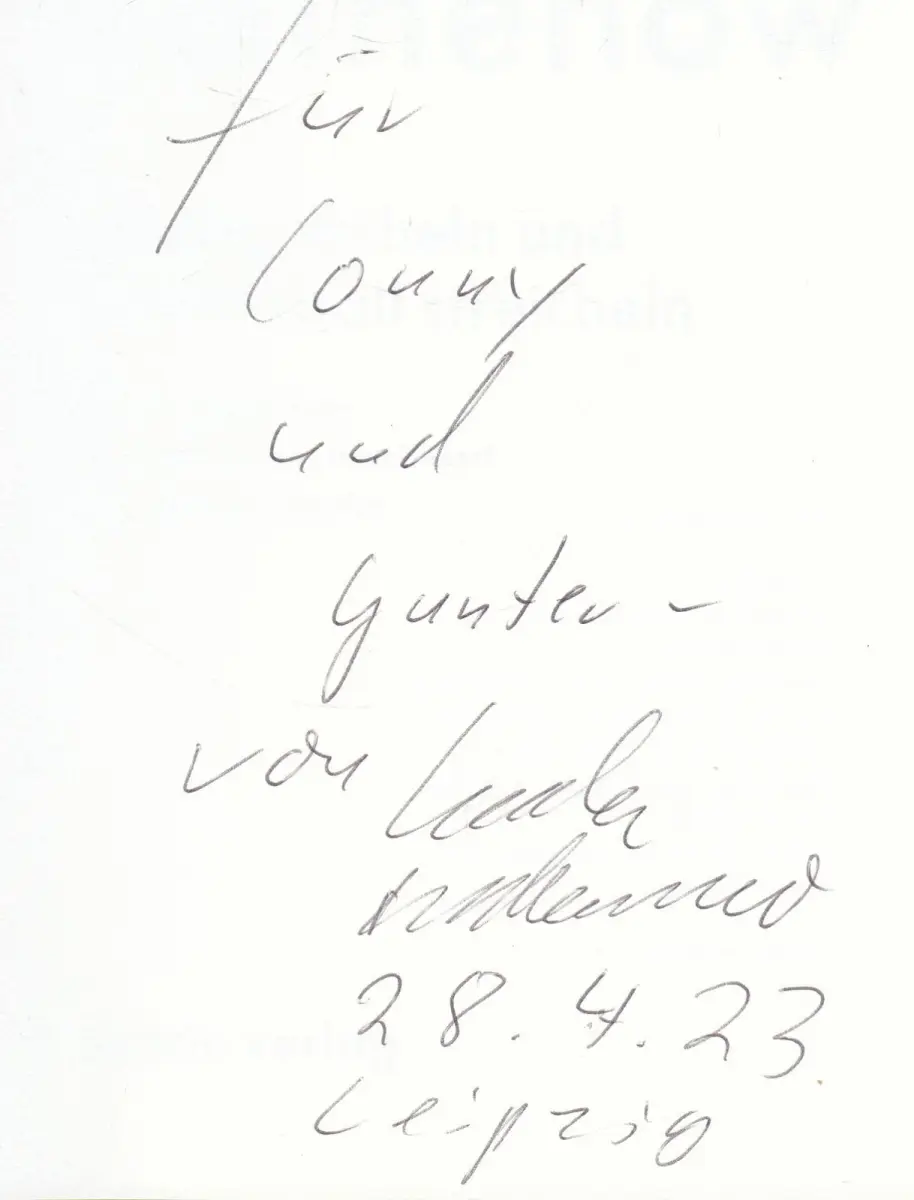 für
Conny
und
Gunter –
von
28.4.23
Leipzig